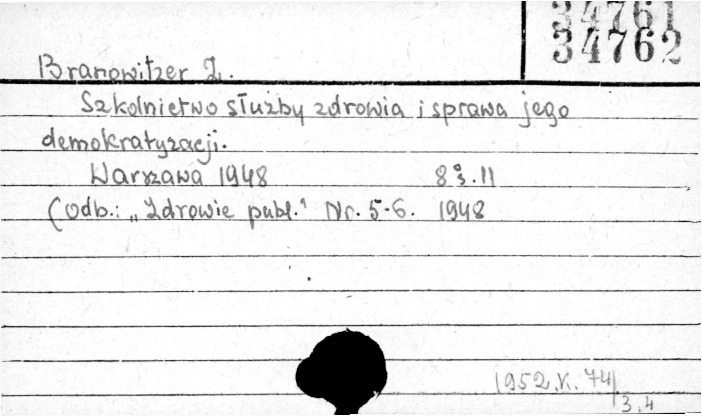 34761
34762
Branowitzer L.
Szkolnictwo służby zdrowia i sprawa jego
demokratyzacji.
Warszawa 1948 8°s.11
(odb.: „Zdrowie publ." Nr. 5-6. 1948
1952.K.74/
3.4